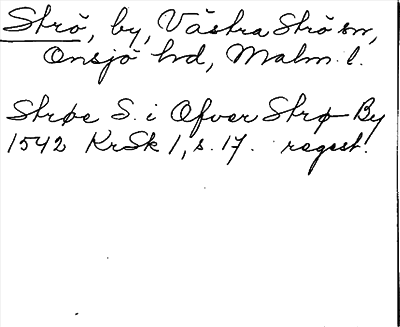 Strö, by, Västra Strö sn,
Onsjö hd, Malm. l.
Strøe S. i Ofver Strø By
1542 KrSk 1, s. 17. regest.